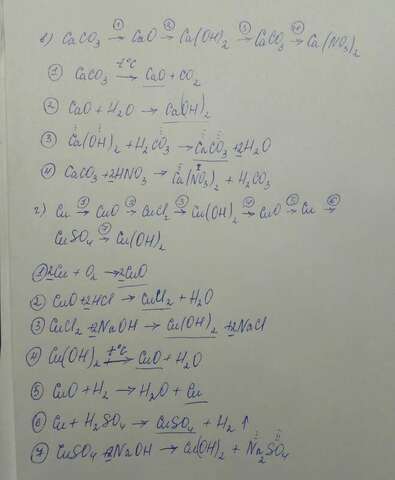 в) CaCO₃ ①→ CaO ②→ Ca(OH)₂ ③→ CaCO₃ ④→ Ca(NO₃)₂
① CaCO₃ t°C→ CaO + CO₂
② CaO + H₂O → Ca(OH)₂
③ Ca(OH)₂ + H₂CO₃ → CaCO₃ + 2H₂O
④ CaCO₃ + 2HNO₃ → Ca(NO₃)₂ + H₂CO₃
г) Cu ①→ CuO ②→ CuCl₂ ③→ Cu(OH)₂ ④→ CuO ⑤→ Cu ⑥→
CuSO₄ ⑦→ Cu(OH)₂
① 2Cu + O₂ → 2CuO
② CuO + 2HCl → CuCl₂ + H₂O
③ CuCl₂ + 2NaOH → Cu(OH)₂ + 2NaCl
④ Cu(OH)₂ t°C→ CuO + H₂O
⑤ CuO + H₂ → H₂O + Cu
⑥ Cu + H₂SO₄ → CuSO₄ + H₂ ↑
⑦ CuSO₄ + 2NaOH → Cu(OH)₂ + Na₂SO₄